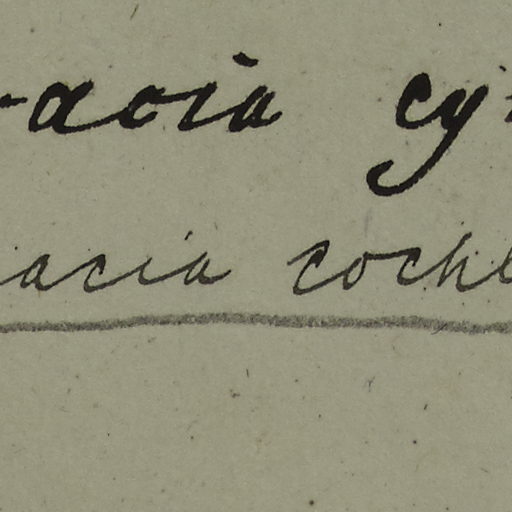 -acia cy
acia cochl